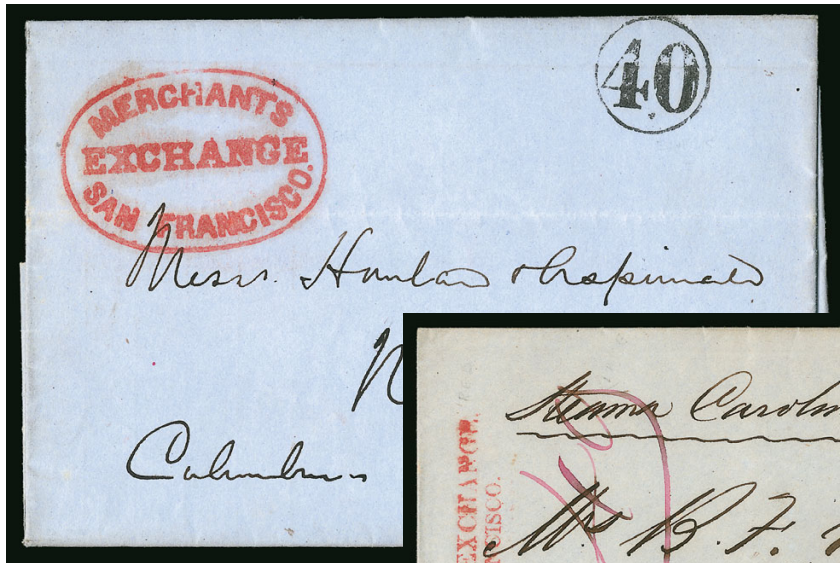 MERCHANTS
EXCHANGE
SAN FRANCISCO.
40
Messrs. Howland & Aspinwall
N
Columbus
Steamer Carolin
EXCHANGE.
NCISCO.
Mrs B. F.